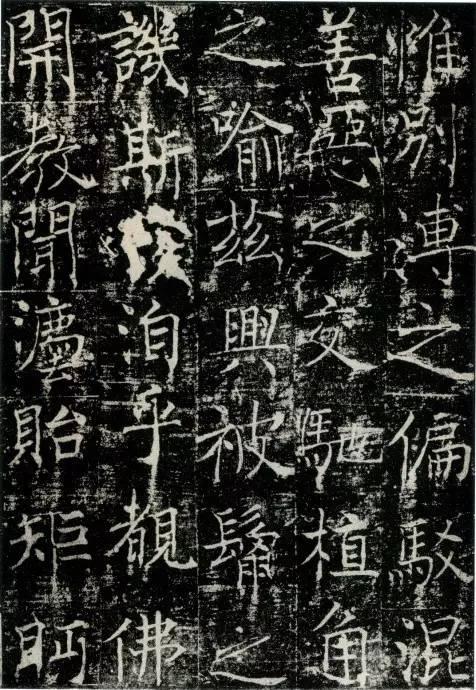 惟別之偏駁混
善惡之交馳植角
之喻茲興被之
譏斯洎乎覩佛
開教聞灋貽矩眄